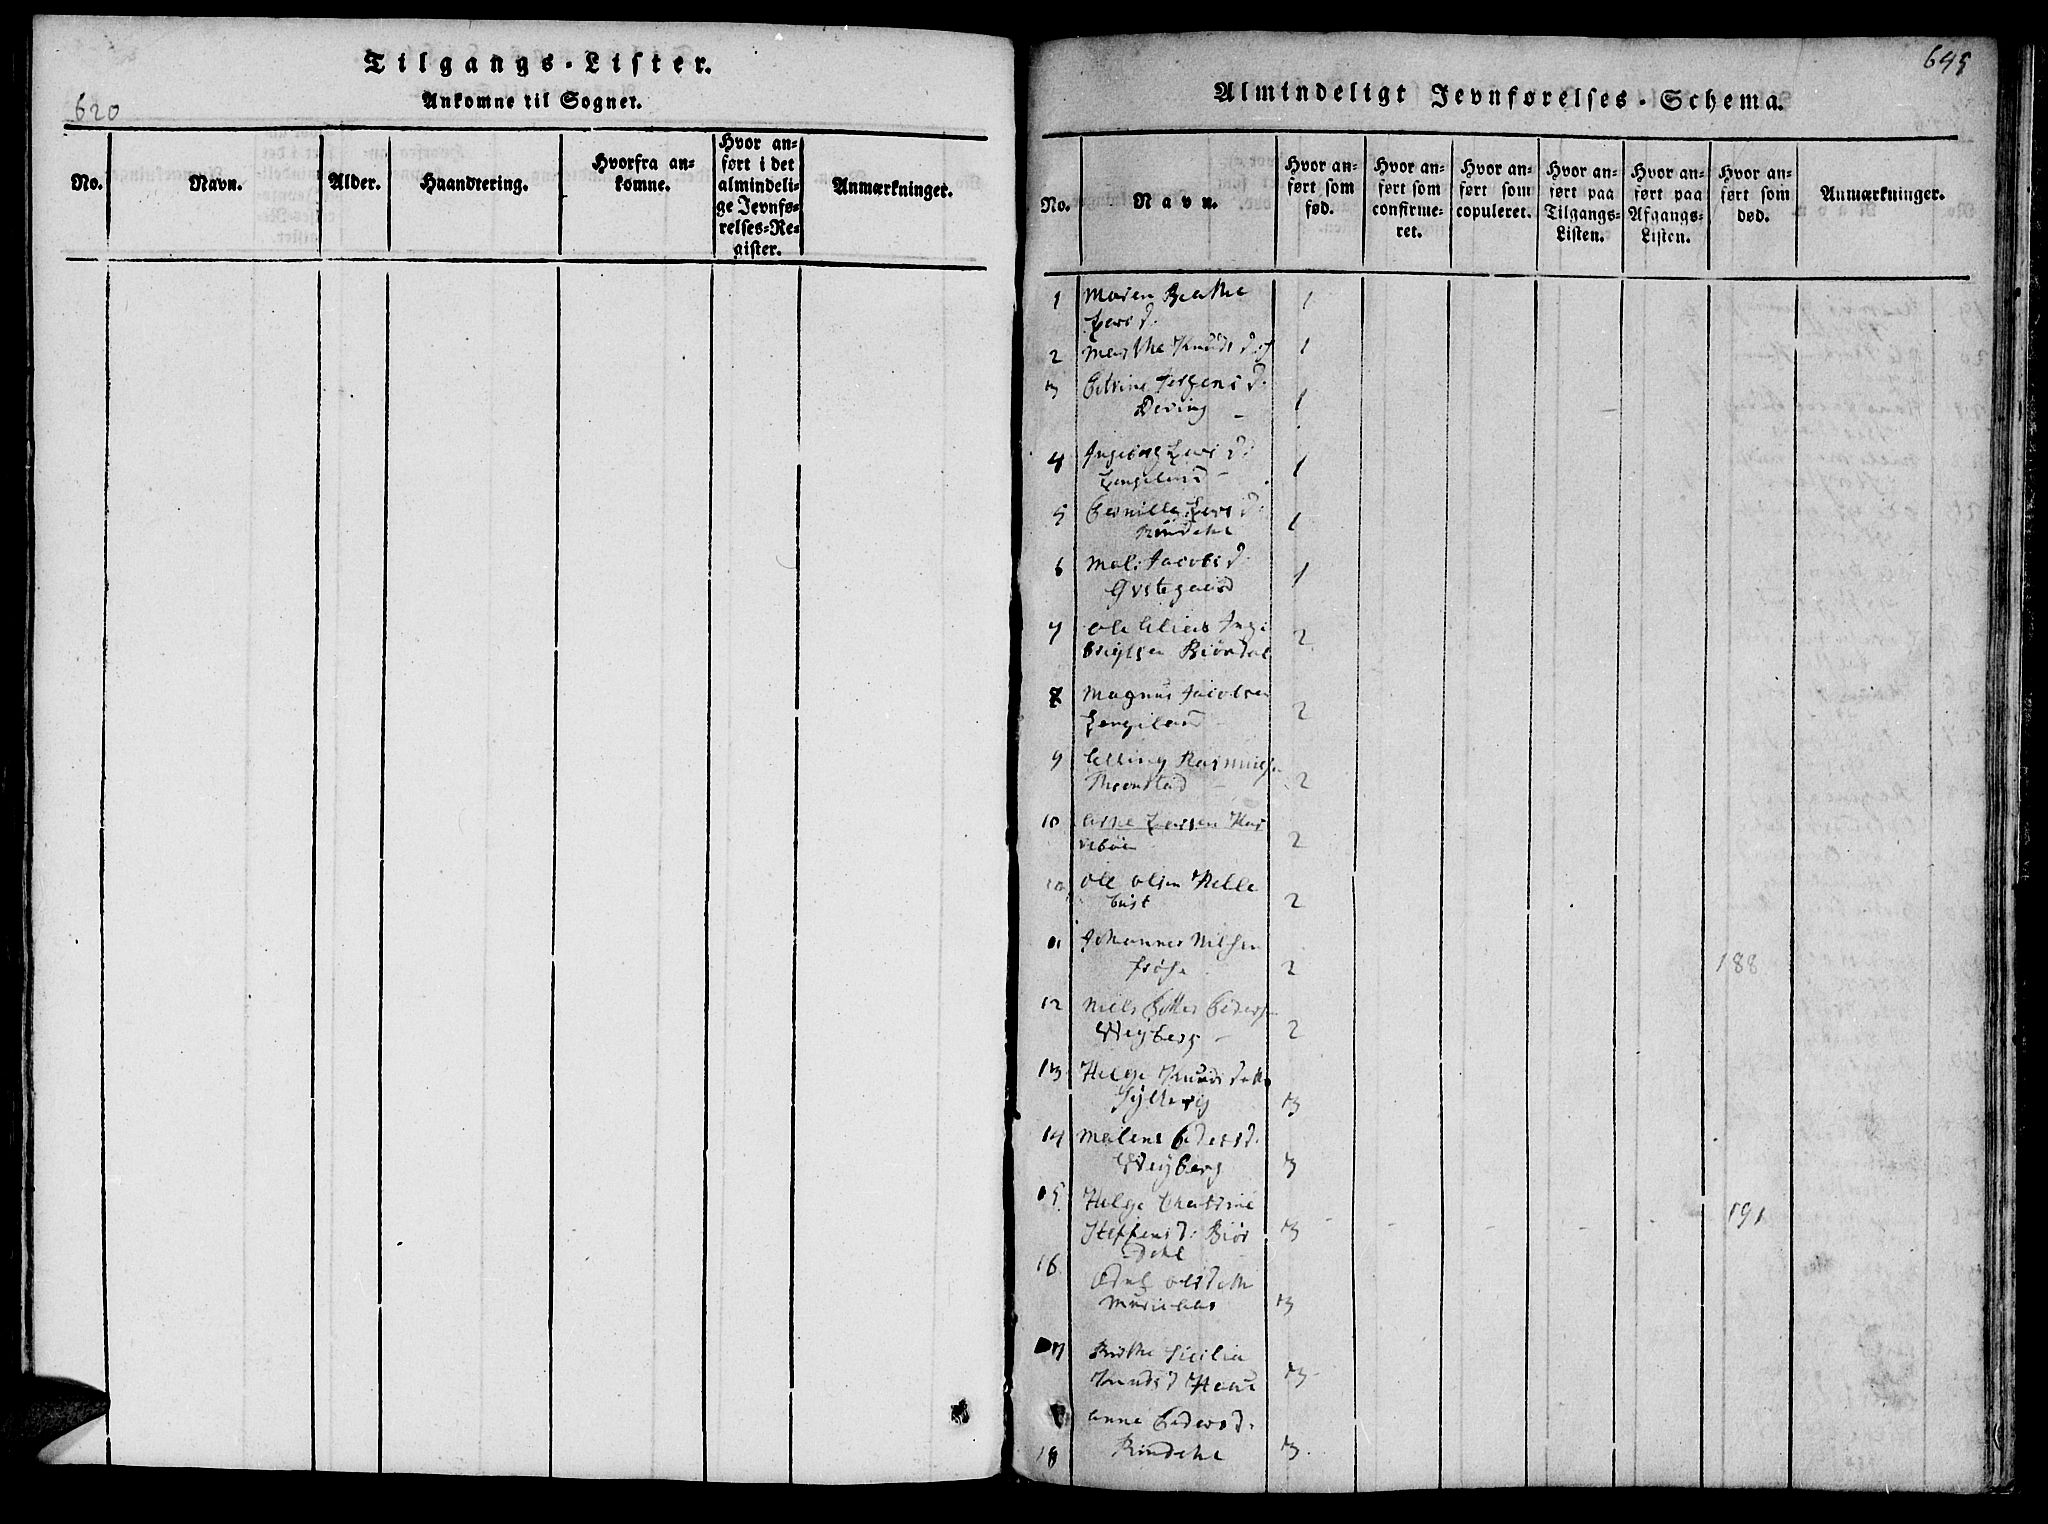 620
Tilgangs-Lister.
Ankomne til Sognet.
No.
Navn.
Alder.
Haandtering.
Hvorfra an-
komne.
Hvor an-
ført i det
almindeli-
ge Jevnfø-
relses-Re-
gister.
Anmærkninger.
645
Almindeligt Jevnførelses-Schema.
No.
Navn.
Hvor an-
ført som
fød.
Hvor an-
ført som
confirme-
ret.
Hvor an-
ført som
copuleret.
Hvor an-
ført paa
Tilgangs-
Listen.
Hvor an-
ført paa
Afgangs-
Listen.
Hvor an-
ført som
død.
Anmærkninger.
1 Maren Beathe 1
Larsd.
2 Marthe Knudsd. 1
3 Petrine Jørgensd.
1
4 Ingeborg Larsd. 1
Langeland
5 Pernille Larsd. 1
Rindehl
6 Mali Jacobsd. 1
Østegaard
7 Ole Elias Inge 2
brigtsen Biørdal
8 Magnus Jacobsen 2
Langeland
9 Elling Rasmusse
2
10 Larsen 2
10 Ole Olsen Kelle
bust 2
11 Johannes Nilsen
2 188
12 Niels Petter Peders
Weyberg 2
13 Helge Knudsdatt
3
14 Malene Pedersd.
Weyberg 3
15 Helge Chatrine
Steffensd. Biør 3 191
dahl
16 Olsdatt
3
17 Birthe Sicilia
Knudsd 3
Anne Pedersd.
18 Rindehl 3